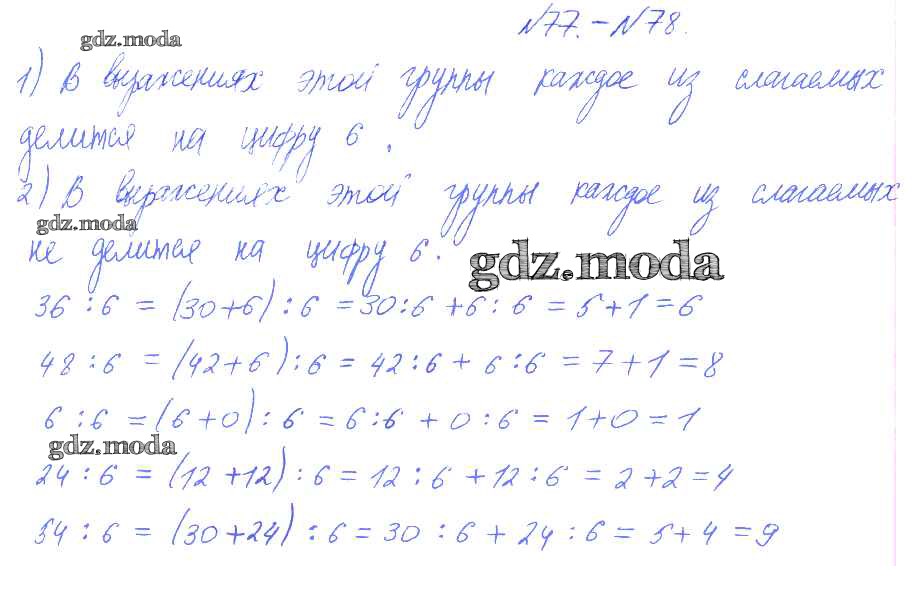 №77.-№78.
gdz.moda
1) В выражениях этой группы каждое из слагаемых
делится на цифру 6.
2) В выражениях этой группы каждое из слагаемых
gdz.moda
не делится на цифру 6.
gdz.moda
36 : 6 = (30+6) : 6 = 30:6 + 6 : 6 = 5+1 = 6
48 : 6 = (42+6) : 6 = 42:6 + 6:6 = 7+1 = 8
6 : 6 = (6+0) : 6 = 6:6 + 0 : 6 = 1+0 = 1
gdz.moda
24 : 6 = (12+12) : 6 = 12 : 6 + 12 : 6 = 2+2 = 4
54 : 6 = (30+24) : 6 = 30 : 6 + 24 : 6 = 5+4 = 9